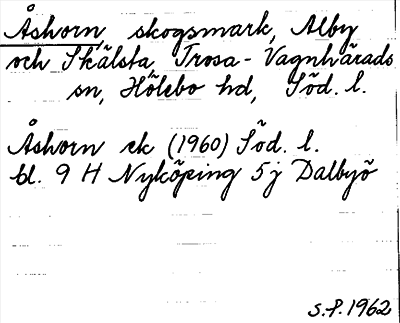 Åshorn, skogsmark, Alby
och Skälsta, Trosa-Vagnhärads
sn, Hölebo hd, Söd. l.
Åshorn ek (1960) Söd. l.
bl. 9 H Nyköping 5 j Dalbyö
S.P. 1962